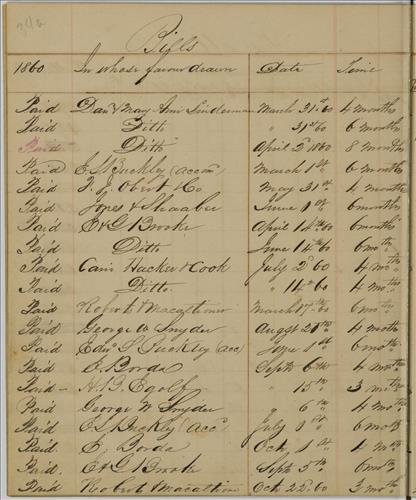 Bills
1860 In whose favour drawn Date Time
Paid Danl & Mary Ann Linderman March 31st 60 4 months
Paid Ditto " 31st 60 6 months
Paid Ditto April 2d 1860 8 months
Paid E S Buckley (accom) March 1st 6 months
Paid Obert & Co May 31st 4 months
Paid Jones & Shuaber June 1st 6 months
Paid E & G Brooke April 14th 60 6 months
Paid Ditto June 14th 60 6 mos
Paid Cain Hacker & Cook July 2d 60 4 mos
Paid Ditto " 14th 60 4 mos
Paid Robert March 17th 60 6 mos
Paid George W Snyder Augst 21st 4 months
Paid Edw S Buckley (acc) June 1st 6 mos
Paid Borda Sept 6th 4 months
Paid " 15th 3 mos
Paid George W Snyder " 6th 4 mos
Paid E S Buckley (acc) July 1st 6 mos
Paid Borda Oct 1st 4 mos
Paid E & G Brooke Sept 5th 6 mos
Paid Robert Oct 22d 60 3 mos